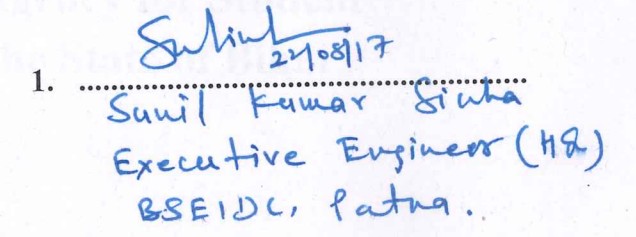 22/08/17
1. ................................................
Sunil Kumar Sinha
Executive Engineer (HQ)
BSEIDC, Patna.